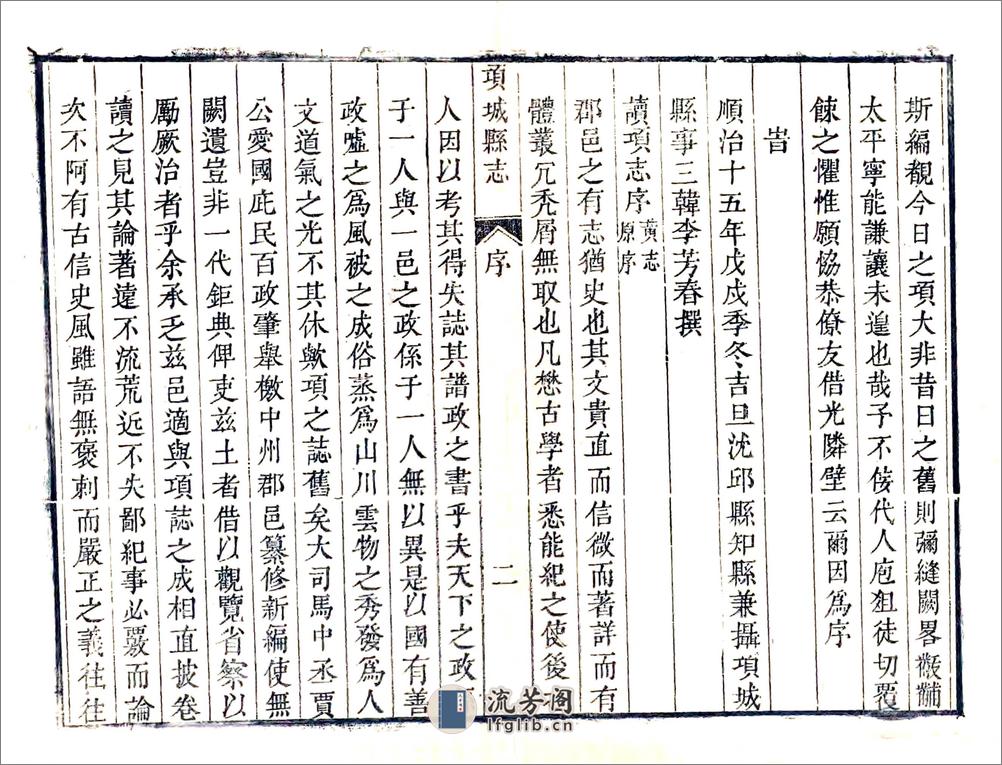 斯編覩今日之項大非昔日之舊則彌縫闕畧黻黼
太平寧能謙讓未遑也哉予不佞代人庖狙徒切覆
餗之懼惟願協恭僚友借光隣壁云爾因爲序
旹
順治十五年戊戌季冬吉旦沈邱縣知縣兼攝項城
縣事三韓李芳春撰
讀項志序 黄志原序
郡邑之有志猶史也其文貴直而信微而著詳而有
體叢冗禿屑無取也凡懋古學者悉能紀之使後
項城縣志 序 二
人因以考其得失誌其譜政之書乎夫天下之政
于一人與一邑之政係于一人無以異是以國有善
政噓之爲風被之成俗蒸爲山川雲物之秀發爲人
文道氣之光不其休歟項之誌舊矣大司馬中丞賈
公愛國庇民百政肇舉檄中州郡邑纂修新編使無
闕遺豈非一代鉅典俾吏兹土者借以觀覽省察以
勵厥治者乎余承乏兹邑適與項誌之成相直披卷
讀之見其論著遠不流荒近不失鄙紀事必覈而論
次不阿有古信史風雖語無褒刺而嚴正之義往往
流芳阁
lfglib.cn